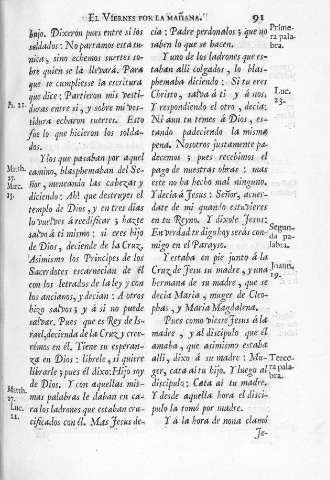 EL VIERNES POR LA MAÑANA. 91
baxo. Dixeron pues entre si los
soldados: No partamos esta tu-
nica, sino echemos suertes so-
bre quien se la llevará. Para
que se cumpliesse la escritura
que dice: Partieron mis vesti-
Ps. 21.
duras entre si, y sobre mi ves-
tidura echaron suertes. Esto
fue lo que hicieron los solda-
dos.
Y los que pasaban por aquel
Matth. 27.
camino, blasphemaban del Se-
Marc. 15.
ñor, meneando las cabezas y
diciendo: Ah! que destruyes el
templo de Dios, y en tres dias
lo vuelves á reedificar; hazte
salvo á ti mismo: si eres hijo
de Dios, deciende de la Cruz.
Asimismo los Principes de los
Sacerdotes escarnecian de él
con los letrados de la ley y con
los ancianos, y decian: A otros
hizo salvos; y á si no puede
salvar. Pues que es Rey de Is-
rael, decienda de la Cruz y cree-
rémos en él. Tiene su esperan-
za en Dios: librele, si quiere
librarle; pues él dixo: Hijo soy
de Dios. Y con aquellas mis-
Matth. 27.
mas palabras le daban en ca-
Luc. 22.
ra los ladrones que estaban cru-
cificados con él. Mas Jesus de-
cia: Padre perdonalos, que no
Primera palabra.
saben lo que se hacen.
Y uno de los ladrones que es-
taban alli colgados, lo blas-
phemaba diciendo: Si tu eres
Christo, salva á ti y á nos.
Luc. 23.
Y respondiendo el otro, decia:
Ni aun tu temes á Dios, es-
tando padeciendo la misma
pena. Nosotros justamente pa-
decemos; pues recebimos el
pago de nuestras obras: mas
este no ha hecho mal ninguno.
Y decia á Jesus: Señor, acuer-
date de mi quando estuvieres
en tu Reyno. Y dixole Jesus:
Segunda palabra.
En verdad te digo, hoy serás con-
migo en el Parayso.
Y estaba en pie junto á la
Joann. 19.
Cruz de Jesu su madre, y una
hermana de su madre, que se
decia Maria, muger de Cleo-
phas, y Maria Magdalena.
Pues como viesse Jesus á la
madre, y al discipulo que él
amaba, que asimismo estaba
alli, dixo á su madre: Mu-
Tercera palabra.
ger, cata ai tu hijo. Y luego al
discipulo: Cata ai tu madre.
Y desde aquella hora el disci-
pulo la tomó por madre.
Y á la hora de nona clamó
Je-